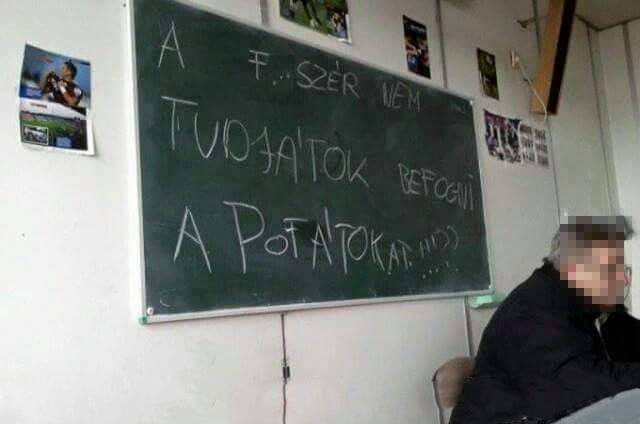 A F...SZÉR NEM
TUDJÁTOK BEFOGNI
A POFÁTOKAT!!!))
.....